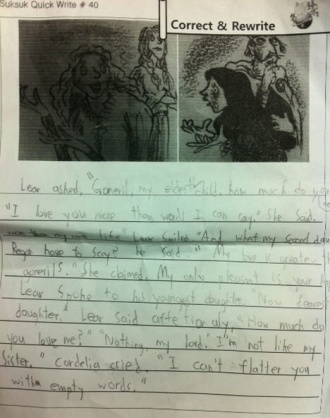 Suksuk Quick Write # 40
Correct & Rewrite
Lear asked, "Goneril, my eldest child, how much do you
"I love you more than words I can say," She said.
Lear smiles "And what my second
Regan have to say?" he said. "My love is greater
Goneril's." She claimed. My only pleasant is your
Lear Spoke to his youngest daughter. "Now
daughter." Lear said affetionaly, "How much do
you love me?" "Nothing, my lord. I'm not like my
Sister." Cordelia cries. "I can't flatter you
with empty words."